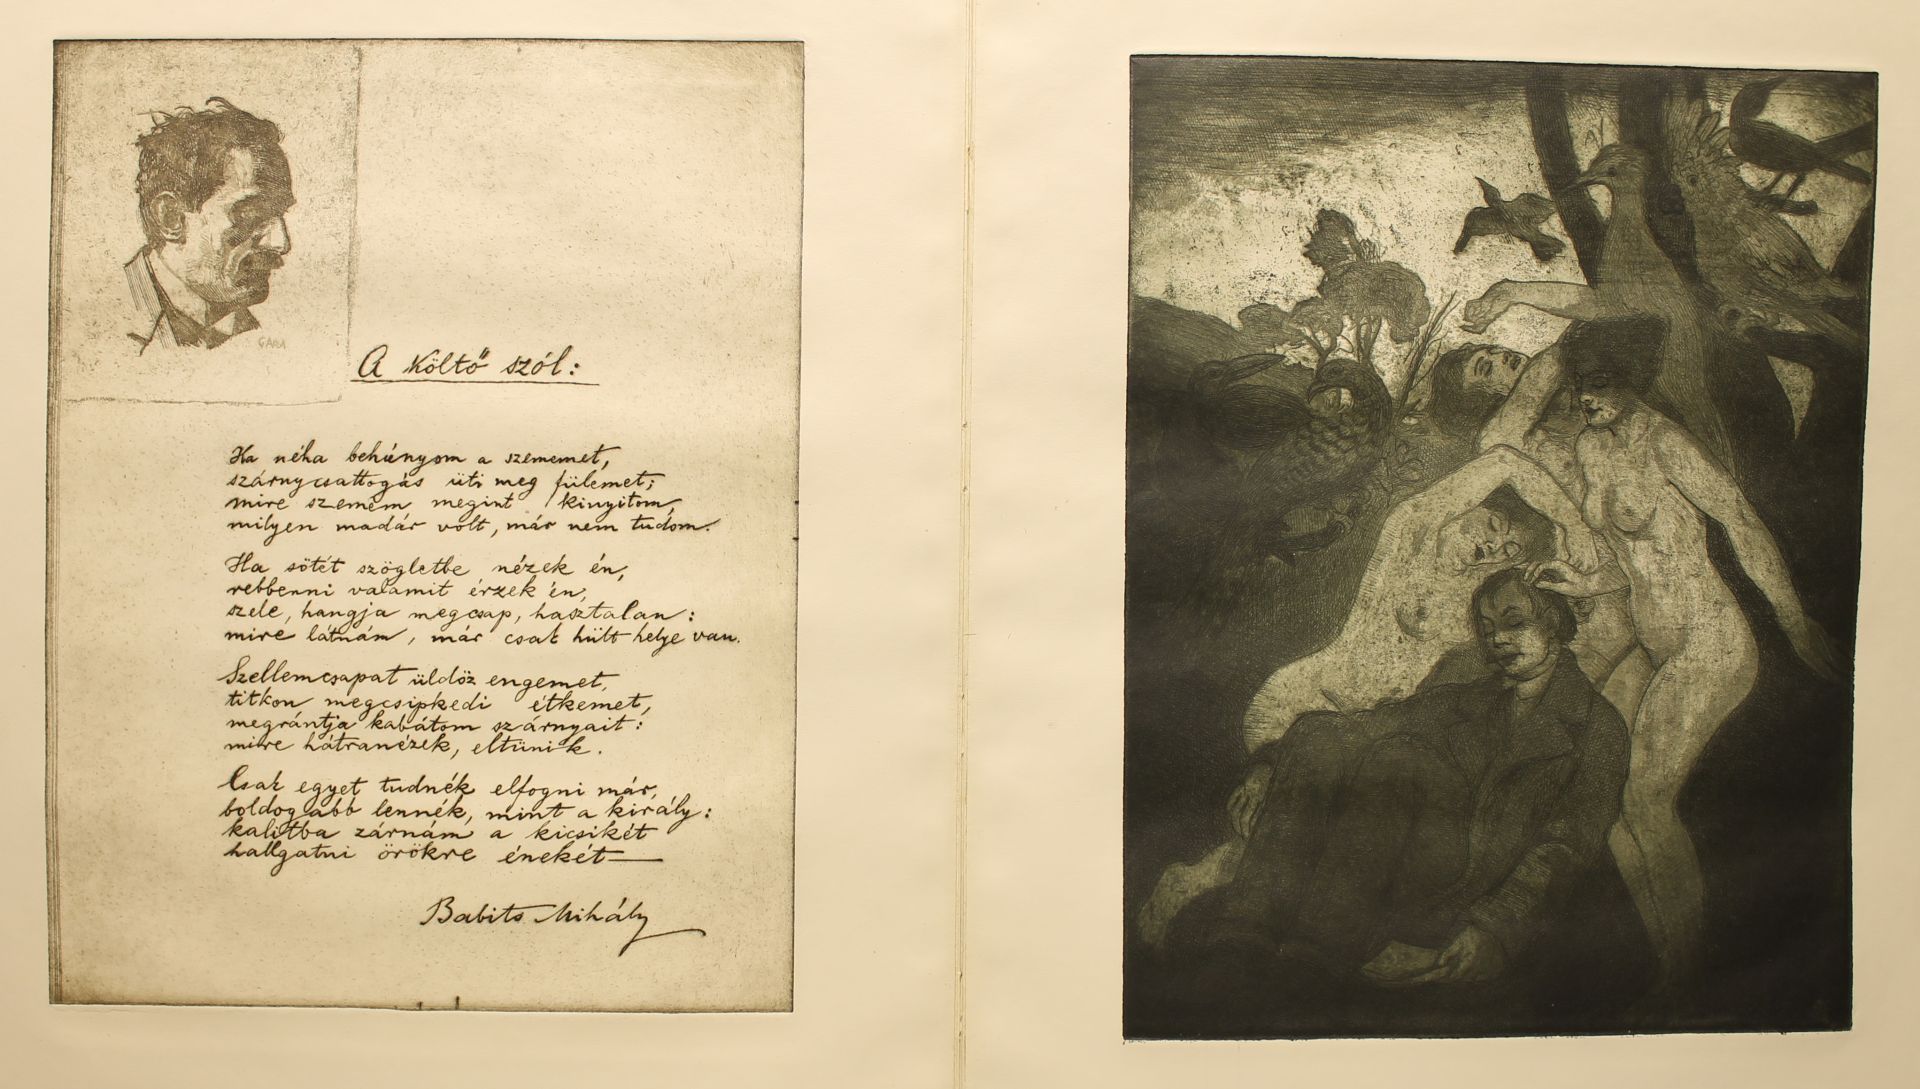 GARA
A költő szól:
Ha néha behúnyom a szememet,
szárnycsattogás üti meg fülemet;
mire szemem megint kinyitom,
milyen madár volt, már nem tudom.
Ha sötét szögletbe nézek én,
rebbenni valamit érzek én,
szele, hangja megcsap, hasztalan:
mire látnám, már csak hült helye van.
Szellemcsapat üldöz engemet,
titkon megcsipkedi étkemet,
megrántja kabátom szárnyait:
mire hátranézek, eltünik.
Csak egyet tudnék elfogni már,
boldogabb lennék, mint a király:
kalitba zárnám a kicsikét
hallgatni örökre énekét—
Babits Mihály